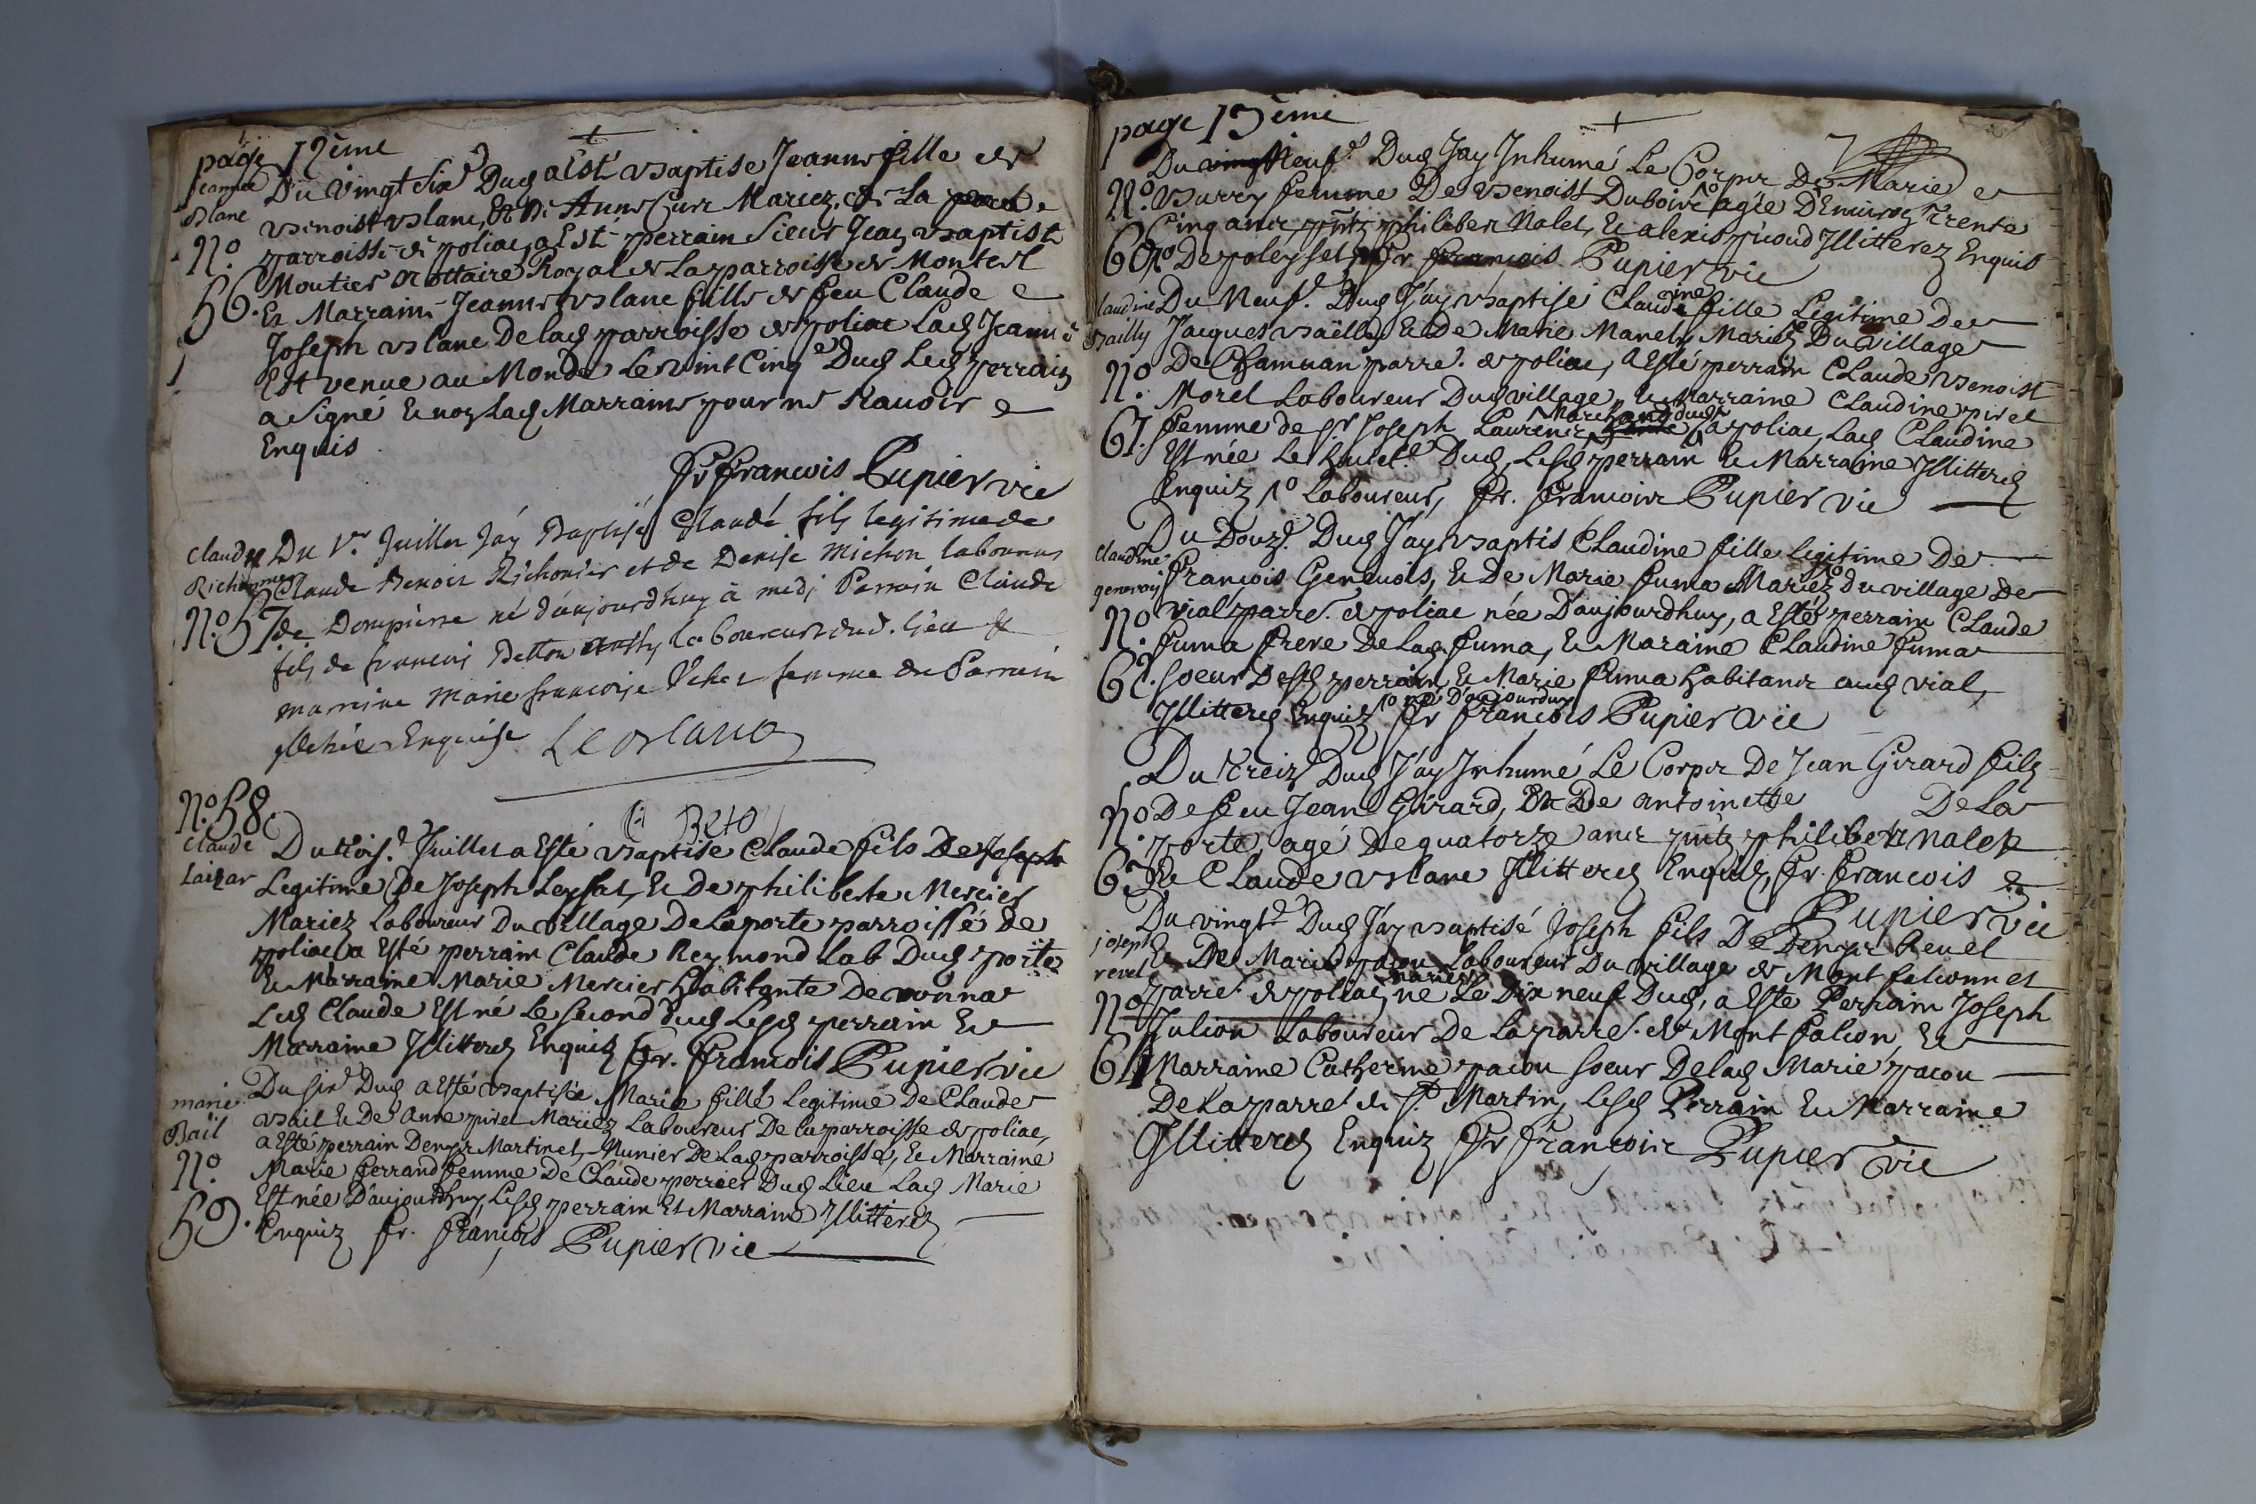 page 12ème
Jeanne Blanc
Du vingt Six.e Dud a Esté Baptise Jeanne fille de
Benoist Blanc, Et De Anne Cure Mariez, de La
parroisse de poliac, a Esté perrain Sieur Jean Baptiste
No.
Moutier Nottaire Royal de La parroisse de
56.
Et Marraine Jeanne Blanc fille de feu Claude
Joseph Blanc De lad parroisse de poliac Lad Jeanne
Est venue au Monde Le vint Cinq.e Dud Led perrain
a Signé Et non Lad Marraine pour ne scavoir
Enquis
Fr. francois Pupier vic
Claude Richonnier
Du 1er Juillet Jáy Baptisé Claude fils legitime de
Claude Benoit Richonier et de Denise Michon laboureur
No. 57.
de Dompierre né daujourdhuy à midj Parrain Claude
fils de francois laboureur dud. lieu &
marraine Marie francoise femme du Parrain
Enquise
No. 58.
Claude
Du trois.e Juillet a Esté Baptise Claude fils De Joseph
Legitime De Joseph Leyssat, Et De philiberte Mercier
Mariez Laboureur Du village De Laporte parroisse De
poliac a Esté perrain Claude Reymond Lab Dud porte
Et Marraine Marie Mercier habitante De
Led Claude Est né Le second Dud Lesd perrain Et
Marraine Illitterez Enquiz Fr. francois Pupier vic
marie Bail
Du six.e Dud a Esté Baptisée Marie fille Legitime De Claude
Bail Et De Anne piret Mariez Laboureur De La parroisse de poliac,
a Esté perrain Denys Martinet, Munier De Lad parroisse, Et Marraine
No.
Marie ferrand femme De Claude perrier Dud Lieu Lad Marie
Est née D'aujourdhuy, Lesd perrain Et Marraine Illitterez
59.
Enquiz fr. françois Pupier vic
page 13ème
7
Du Neuf.e Dud Jay Inhumé Le Corps De Marie
No.
Burry femme De Benoist Duboir agée Denviron Trente
Cinq ans, pntz philiber Nalet, Et alexis picoud Illitterez Enquis
60
De poleysset Fr. françois Pupier vic
Claudine Bailly
Du Neuf.e Dud Jáy Baptisé Claudine fille Legitime De
Jacques Baëlly Et De Marie Manel Mariez Du village
No.
De Chamuan parre. de poliac, a Esté perrain Claude Benoist
Morel Laboureur Dud village, Et Marraine Claudine piret
61.
femme de Sr Joseph Laurent Marchand dud a poliac, Lad Claudine
Est née Le huict.e Dud, Lesd perrain Et Marraine Illitterez
Enquiz, Laboureur, Fr. francois Pupier vic
claudine genevois
Du Douz.e Dud Jáy Baptis Claudine fille legitime De
françois Genevois, Et De Marie fuma Mariez Du village De
No.
Vial parre. de poliac née Daujourdhuy, a Esté perrain Claude
fuma frere De Lad. fuma, Et Maraine Claudine fuma
62.
soeur Desd perrain, Et Marie fuma habitans aud vial,
né D'aujourduy
Illitterez Enquiz Fr françois Pupier vic
Du Treiz.e Dud Jáy Inhumé Le Corps De Jean Girard fils
No.
De feu Jean Girard, Et De antoinette De La
porte, agé De quatorze ans pntz philibert nalet
63
Et Claude Blanc Illitterez Enquiz, Fr. francois
Pupier vic
joseph revel
Du vingt.e Dud Jáy Baptisé Joseph fils De Denys Revel
Et De Marie pacou Laboureur Du village de Mont falconnet
mariez
No.
parre. de poliac, né Le Dix neuf Dud, a Esté Perrain Joseph
Julion Laboureur De La parre. de Mont falcon, Et
64
Marraine Catherine pacou soeur De lad Marie pacou
De La parre de St. Martin, Lesd Perrain Et Marraine
Illitterez Enquiz Fr François Pupier vic